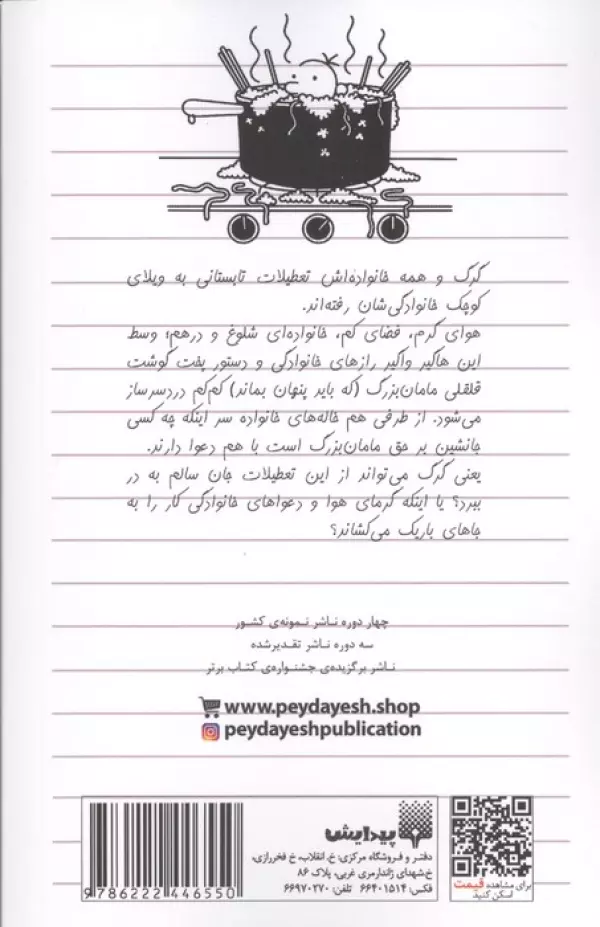 گرگ و همه خانواده‌اش تعطیلات تابستانی به ویلای
کوچک خانوادگی‌شان رفته‌اند.
هوای گرم، فضای کم، خانواده‌ای شلوغ و درهم؛ وسط
این هاگیر واگیر رازهای خانوادگی و دستور پخت گوشت
قلقلی مامان‌بزرگ (که باید پنهان بماند) کم‌کم دردسرساز
می‌شود. از طرفی هم خاله‌های خانواده سر اینکه چه کسی
جانشین بر حق مامان‌بزرگ است با هم دعوا دارند.
یعنی گرگ می‌تواند از این تعطیلات جان سالم به در
ببرد؟ یا اینکه گرمای هوا و دعواهای خانوادگی کار را به
جاهای باریک می‌کشاند؟
چهار دوره ناشر نمونه‌ی کشور
سه دوره ناشر تقدیرشده
ناشر برگزیده‌ی جشنواره‌ی کتاب برتر
www.peydayesh.shop
peydayeshpublication
پیدایش
دفتر و فروشگاه مرکزی: خ. انقلاب، خ فخررازی،
خ شهدای ژاندارمری غربی، پلاک ۸۶
فکس: ۶۶۴۰۱۵۱۴ تلفن: ۶۶۹۷۰۲۷۰
برای مشاهده قیمت
اسکن کنید
9 786222 446550